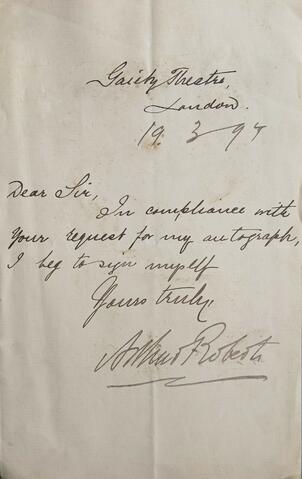 Gaiety Theatre,
London.
19. 3 94
Dear Sir,
In compliance with
your request for my autograph,
I beg to sign myself
Yours truly
Arthur Roberts